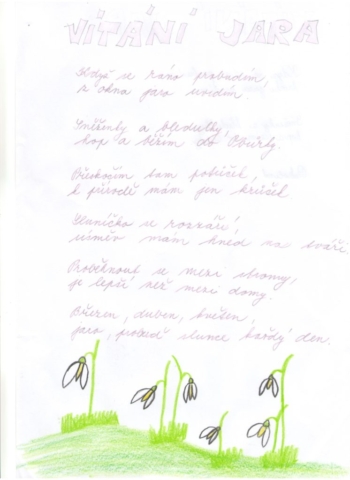 VÍTÁNÍ JARA
Když se ráno probudím
z okna jaro uvidím.
Sněženky a bledulky,
hop a běžím do Obůrky.
Přeskočím tam potůček,
k přírodě mám jen krůček.
Sluníčko se rozzáří,
úsměv mám hned na tváři.
Proběhnout se mezi stromy,
je lepší než mezi domy.
Březen, duben, květen,
jaro, slunce každý den.